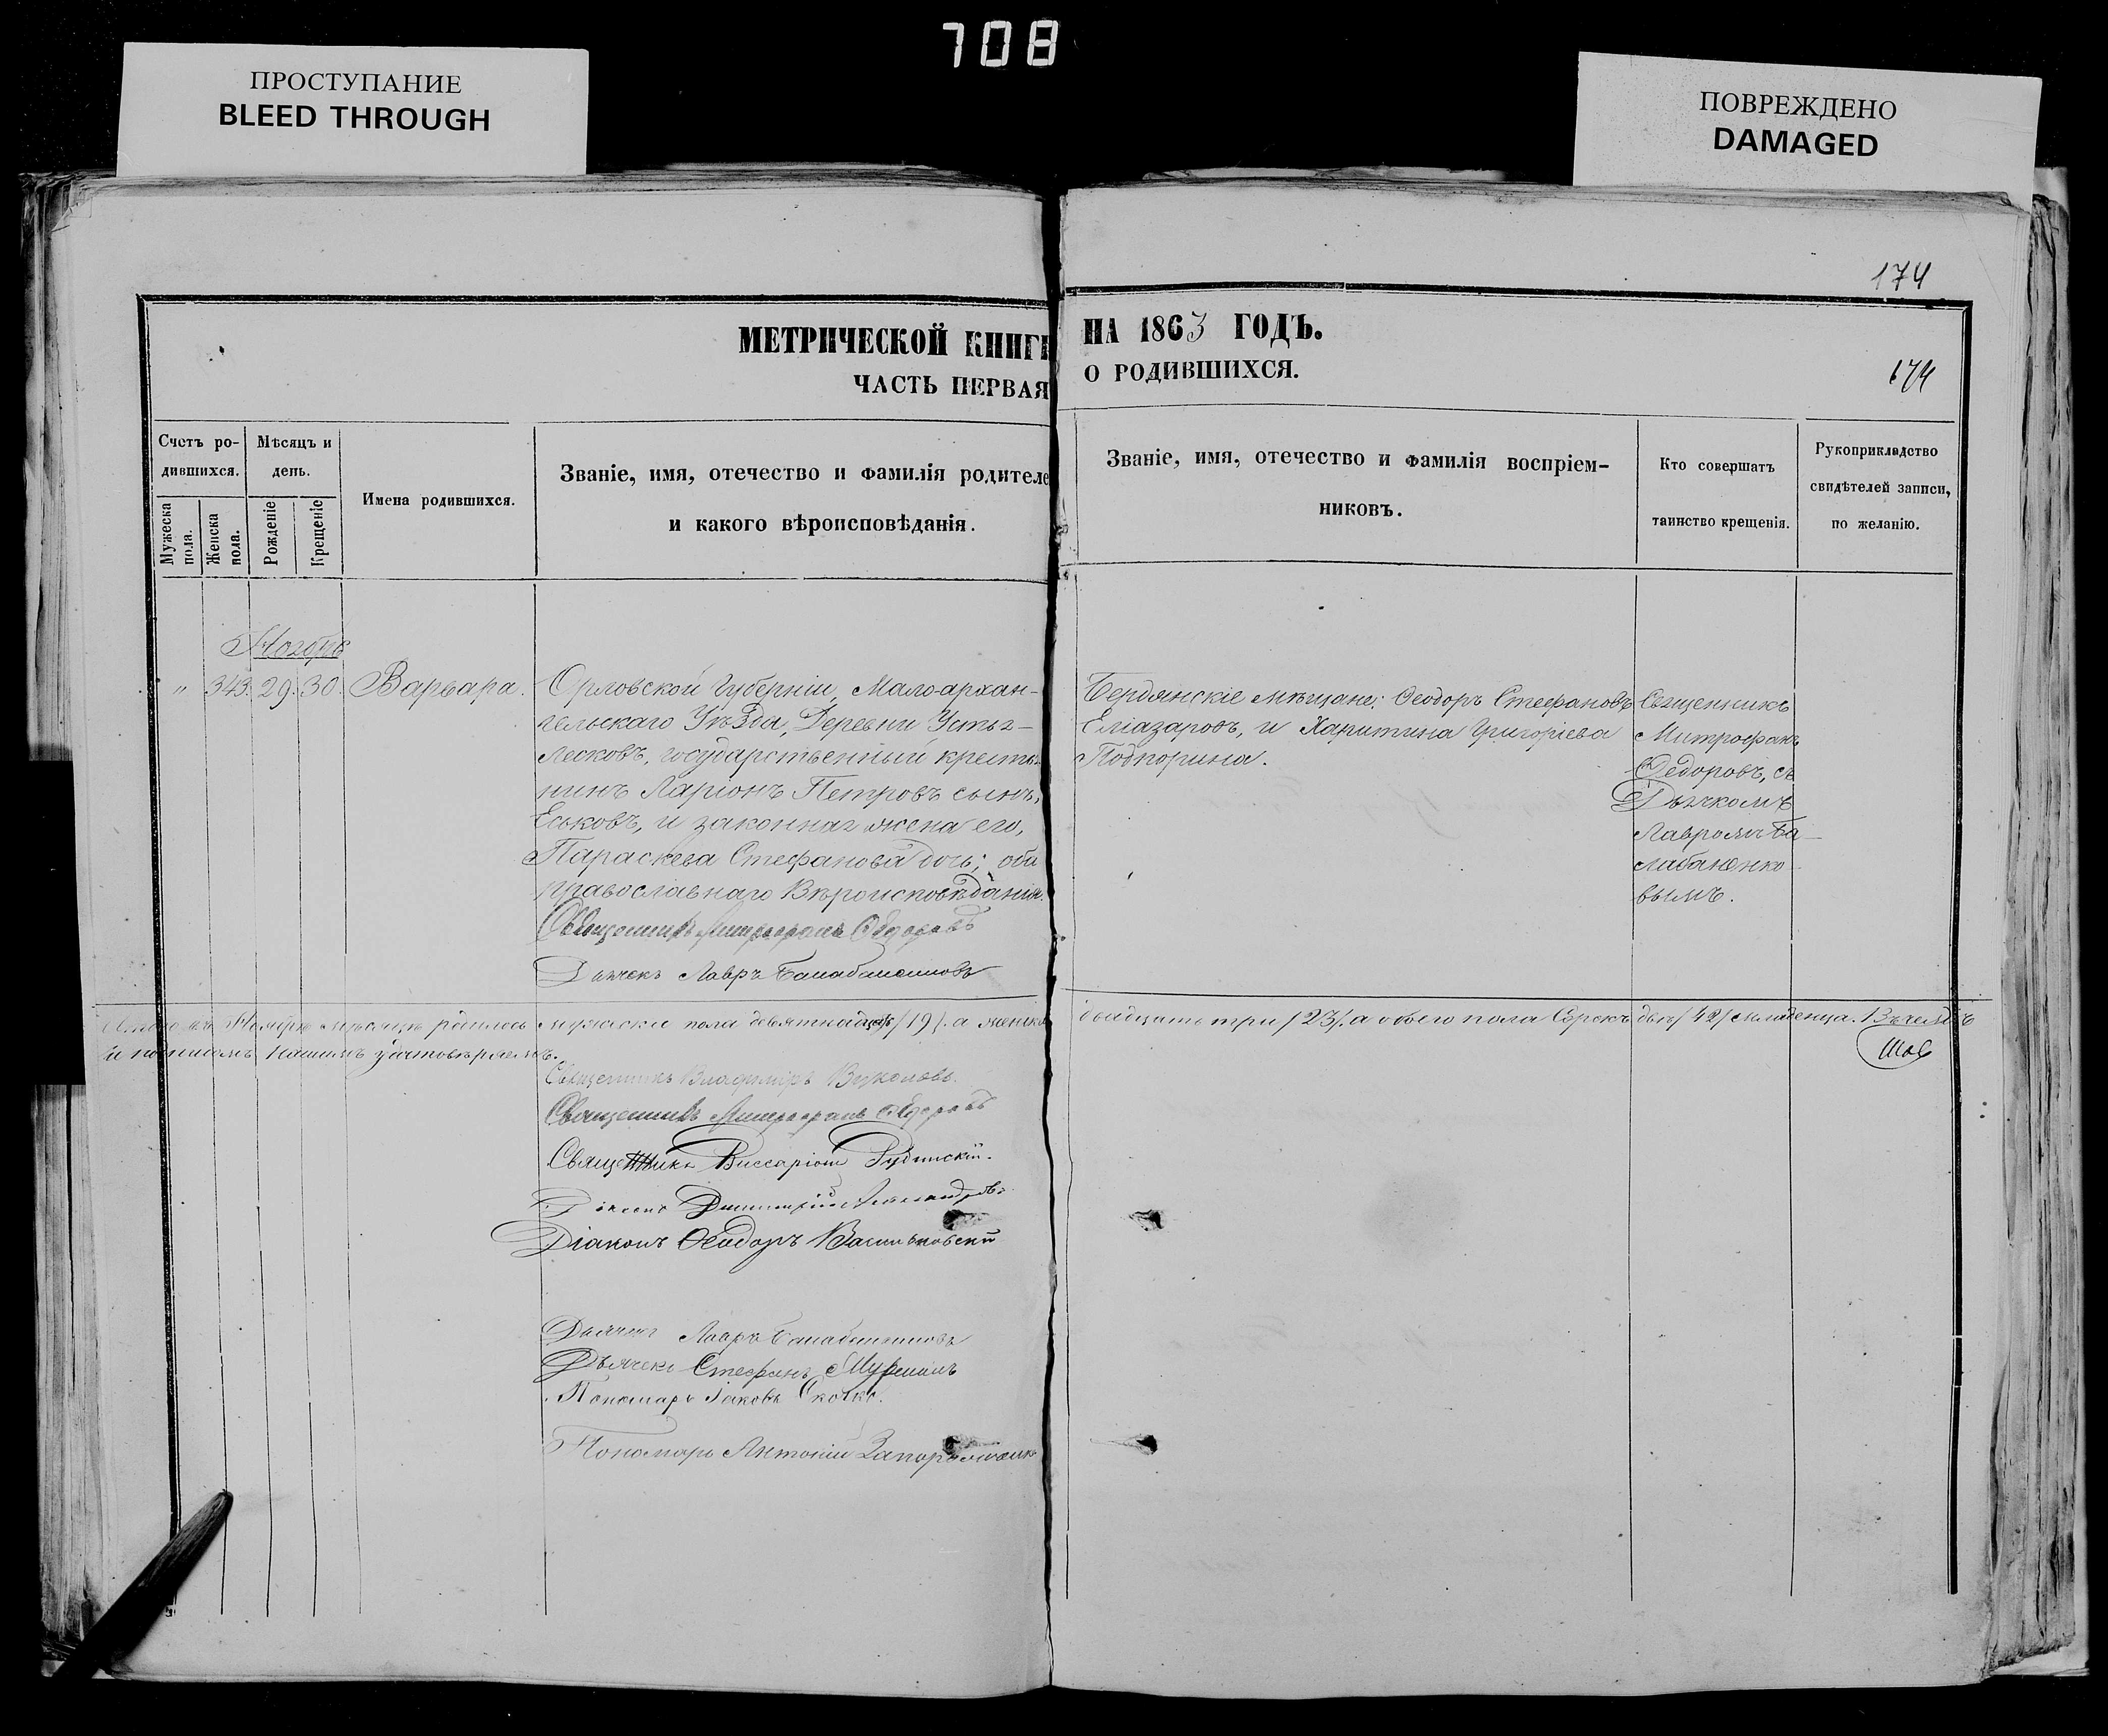 708
ПРОСТУПАНИЕ
BLEED THROUGH
ПОВРЕЖДЕНО
DAMAGED
174
МЕТРИЧЕСКОЙ КНИГИ НА 1863 ГОДЪ.
ЧАСТЬ ПЕРВАЯ О РОДИВШИХСЯ.
174
Счетъ ро-
дившихся.
Мужеска пола.
Женска пола.
Мѣсяцъ и
день.
Рожденіе
Крещеніе
Имена родившихся.
Званіе, имя, отечество и фамилія родителе
и какого вѣроисповѣданія.
Званіе, имя, отечество и фамилія воспріем-
никовъ.
Кто совершатъ
таинство крещенія.
Рукоприкладство
свидѣтелей записи,
по желанію.
Ноябрь
" 343. 29. 30. Варвара.
Орловской Губерніи, Мало-архан-
гельскаго Уѣзда, Деревни Усть-
Лесковъ, государственный кресть-
нинъ Ларіонъ Петровъ сынъ,
Еськовъ, и законная жена его,
Параскева Стефанова дочь; оба
православнаго Вѣроисповѣданія.
Священникъ Митрофанъ Ѳедоровъ
Дьячекъ Лавръ Балабаненковъ
Бердянскіе мѣщане: Ѳеодоръ Стефановъ
Еліазаровъ, и Харитина Григоріева
Подпорина.
Священникъ
Митрофанъ
Ѳедоровъ, съ
Дьячкомъ
Лавромъ Ба-
лабаненко-
вымъ.
Ноябрѣ мѣсяцѣ родилось мужеска пола девятнадцать /19/. а женска двадцать три /23/. а обоего пола Сорокъ два /42/ младенца.
и подписомъ нашимъ удостовѣряемъ.
Священникъ Владиміръ Вуколовъ.
Священникъ Митрофанъ Ѳедоровъ
Священникъ Виссаріонъ
Діаконъ Димитрій
Діаконъ Ѳеодоръ Васильковскій
Дьячекъ Лавръ Балабаненковъ
Дьячекъ Стефанъ
Пономарь Іаковъ
Пономарь Антоній